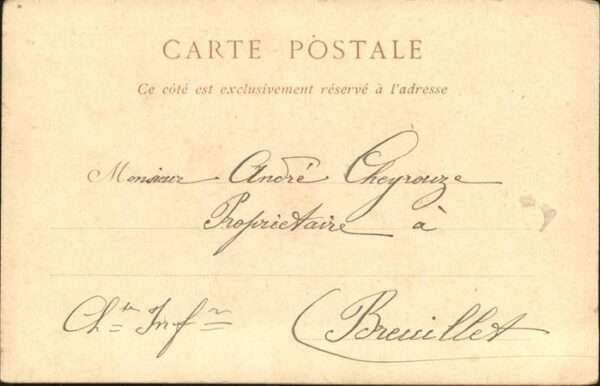 CARTE POSTALE
Ce côté est exclusivement réservé à l'adresse
Monsieur André Cheyrouze
Propriétaire à
Breuillet
Ch.te Infre